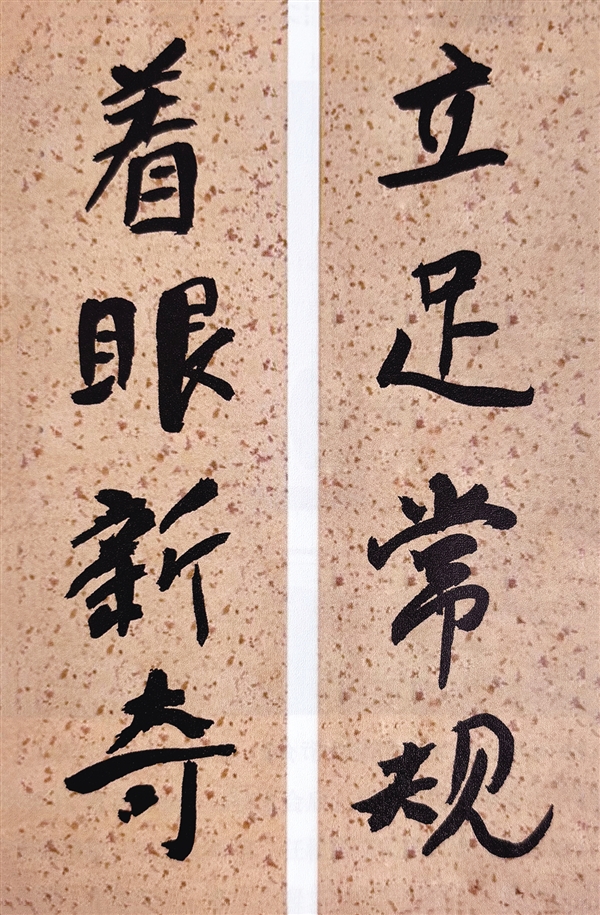 立足常规
着眼新奇